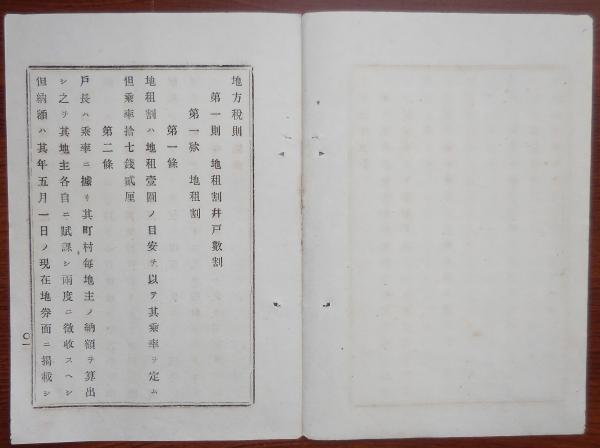 地方税則
第一則 地租割幷戸數割
第一欵 地租割
第一條
地租割ハ地租壹圓ノ目安ヲ以テ其乘率ヲ定ム
但乘率拾七錢貳厘
第二條
戸長ハ乘率ニ據リ其町村毎地主ノ納額ヲ算出
シ之ヲ其地主各自ニ賦課シ兩度ニ徵收スヘシ
但納額ハ其年五月一日ノ現在地劵面ニ揭載シ
〇一